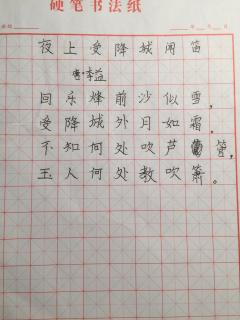 硬笔书法纸
夜上受降城闻笛
唐·李益
回乐烽前沙似雪,
受降城外月如霜。
不知何处吹芦管,
玉人何处教吹箫。